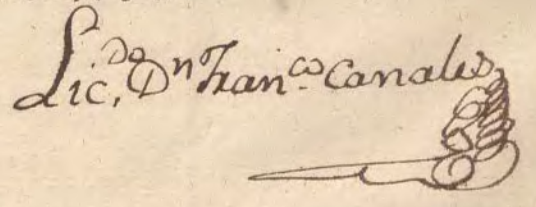 Lic.do Dn Franco. Canales